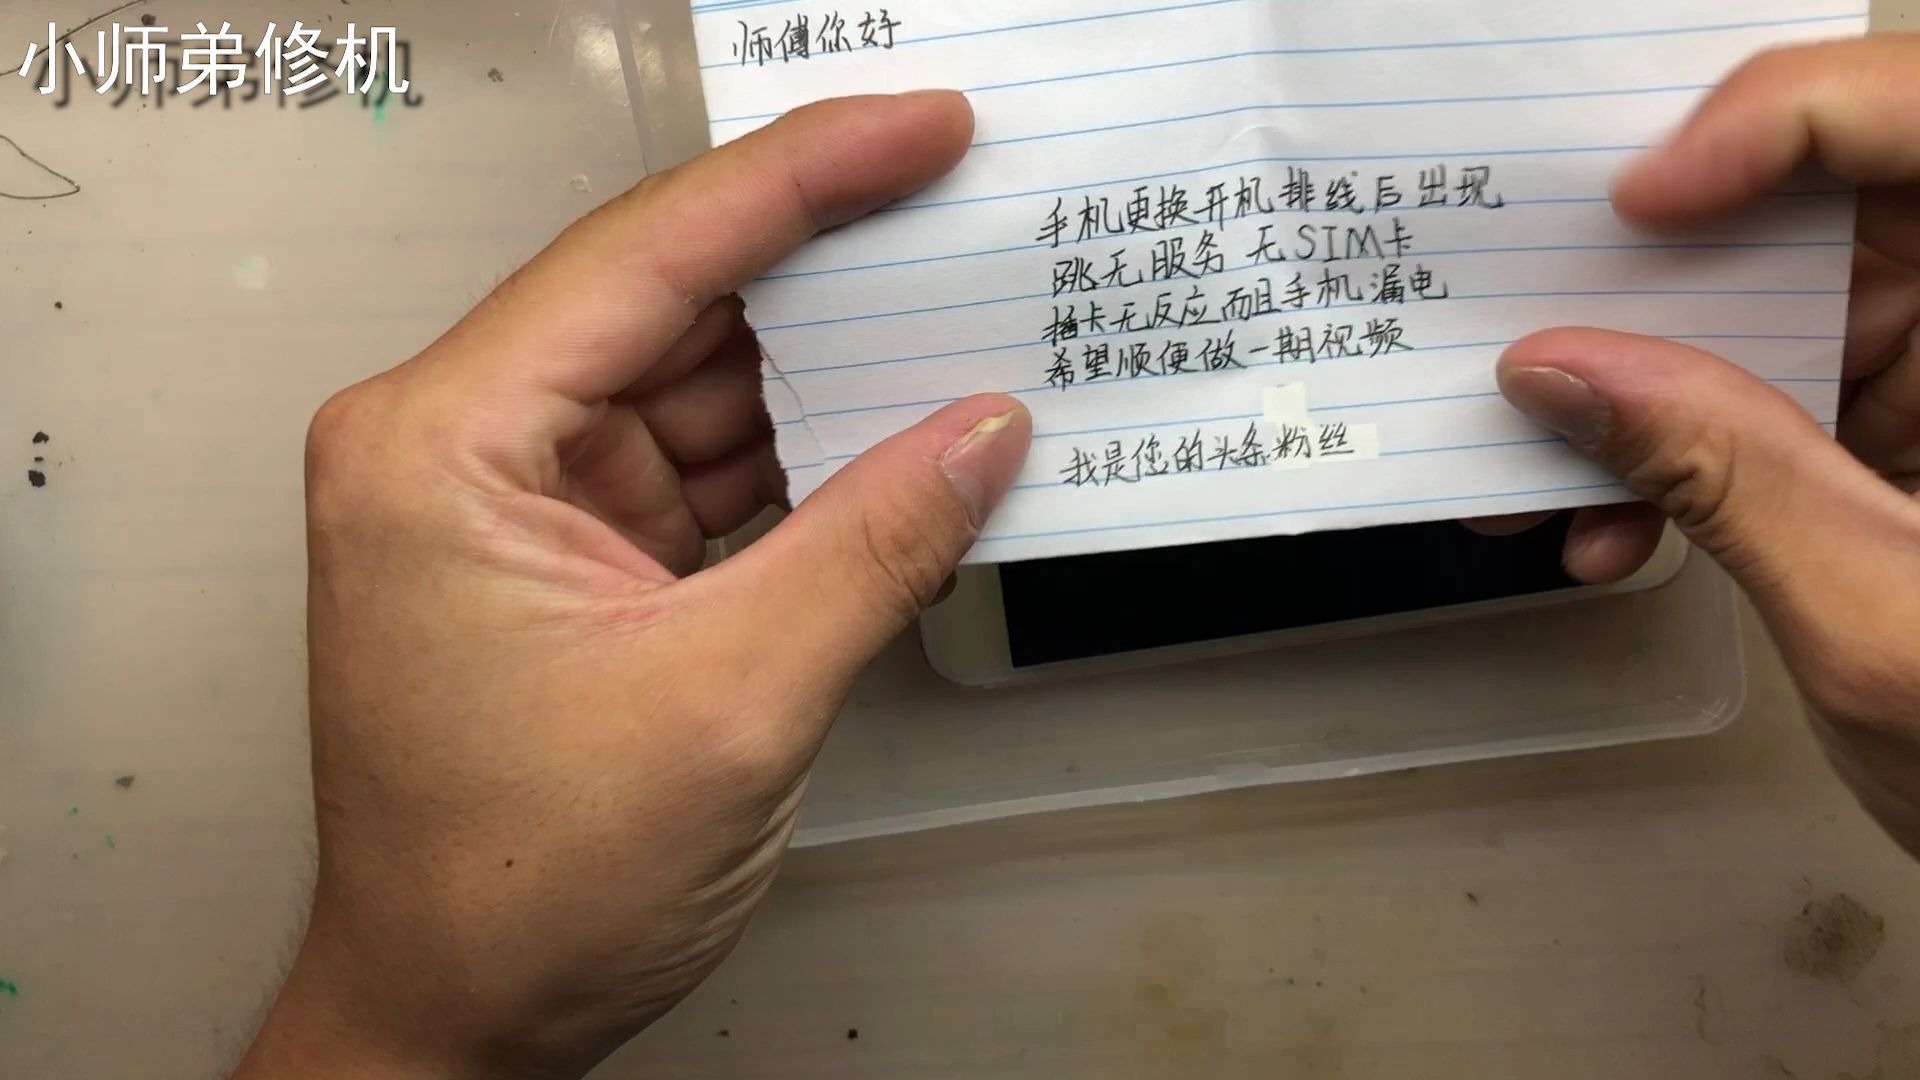 小师弟修机
师傅你好
手机更换开机排线后出现
跳无服务 无SIM卡
插卡无反应而且手机漏电
希望顺便做一期视频
我是您的头条粉丝